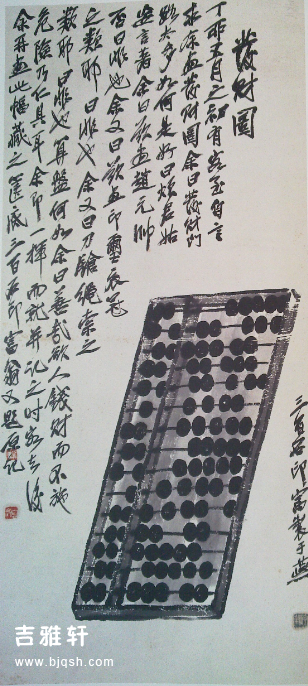 發財圖
丁卯五月之初有客至自言
求余畫發財圖余曰發財門
路太多如何是好曰煩君姑
妄言著余曰欲畫趙元帥
否曰非也余又曰欲畫印璽衣冠
之類耶曰非也余又曰刀槍繩索之
類耶曰非也算盤何如余曰善哉欲人錢財而不施
危險乃仁具耳余即一揮而就并記之時客去後
余再畫此幅藏之篋底三百石印富翁又題原記
三百石印富翁
吉雅轩
www.bjqsh.com